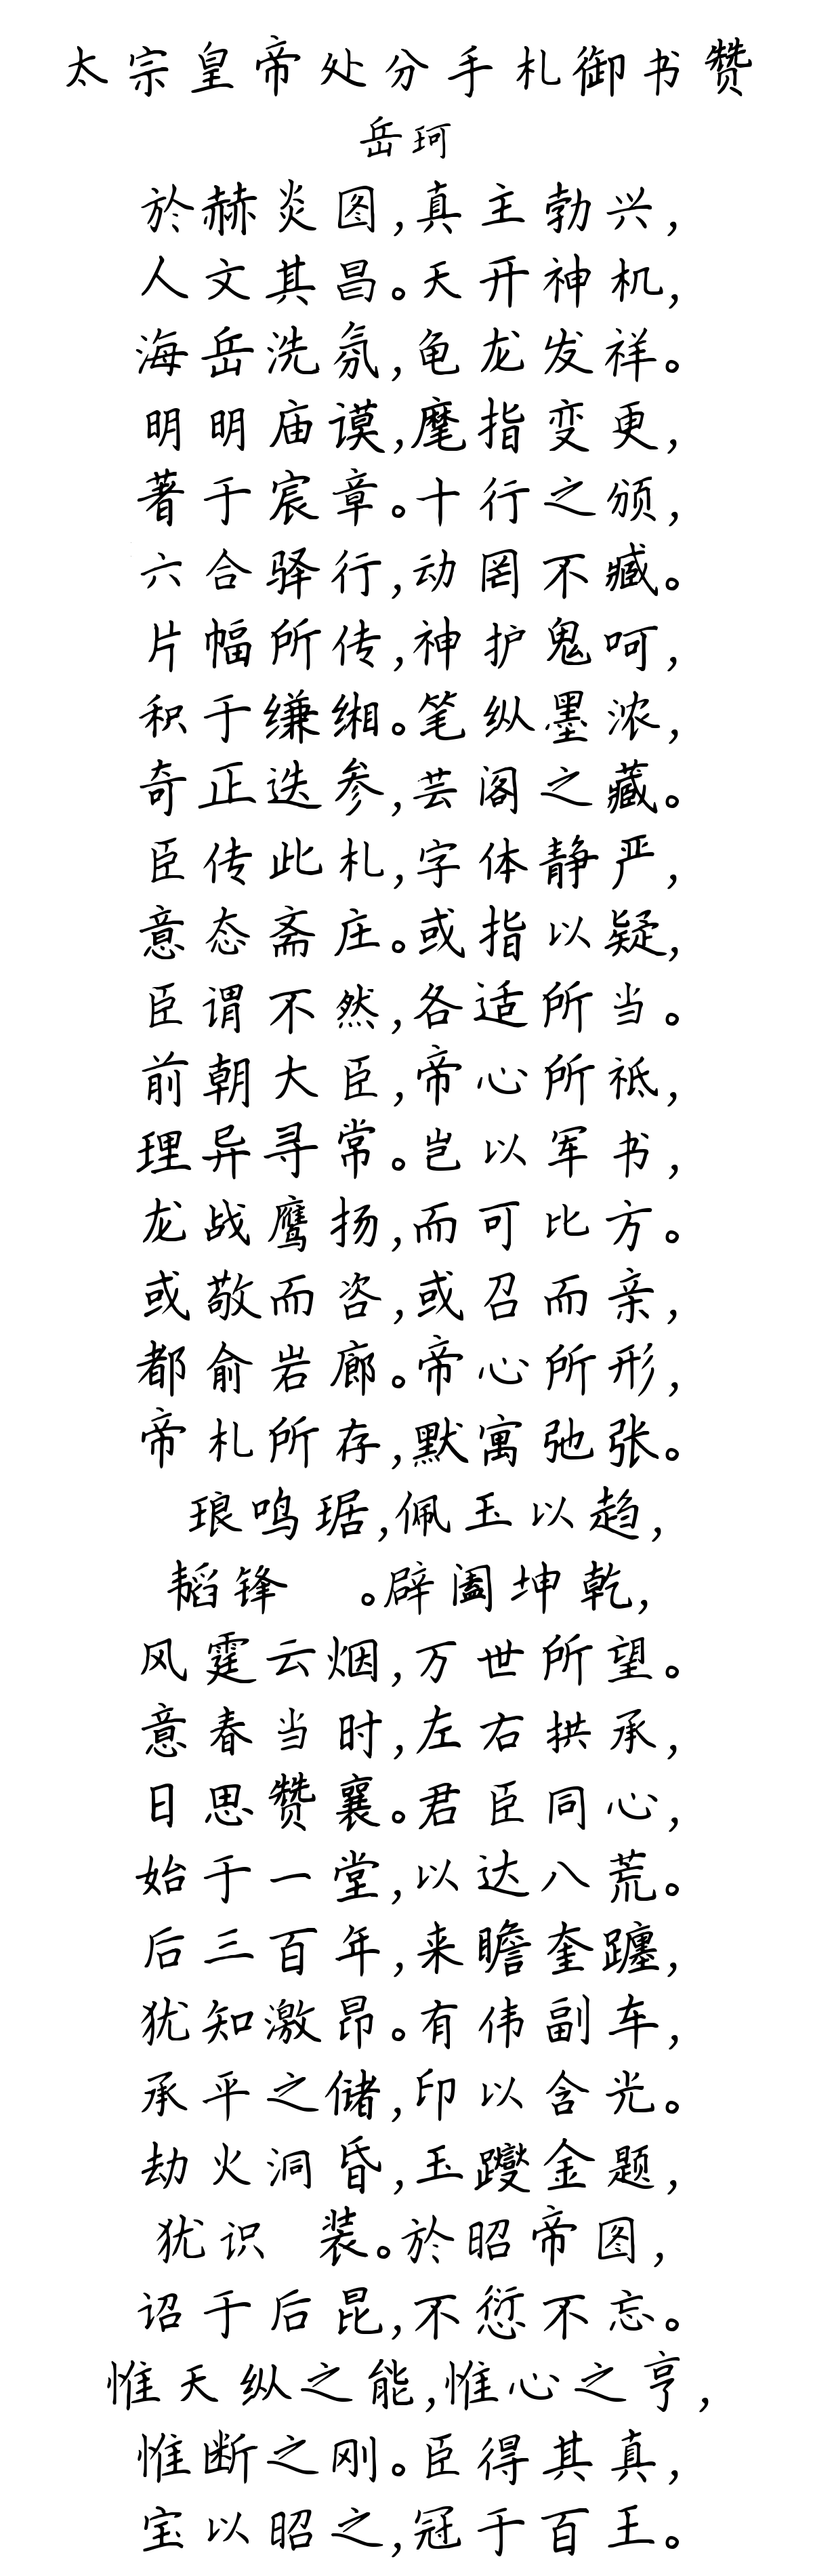 太宗皇帝处分手札御书赞
岳珂
於赫炎图,真主勃兴,
人文其昌。天开神机,
海岳洗氛,龟龙发祥。
明明庙谟,麾指变更,
著于宸章。十行之颁,
六合驿行,动罔不臧。
片幅所传,神护鬼呵,
积于缣缃。笔纵墨浓,
奇正迭参,芸阁之藏。
臣传此札,字体静严,
意态斋庄。或指以疑,
臣谓不然,各适所当。
前朝大臣,帝心所祗,
理异寻常。岂以军书,
龙战鹰扬,而可比方。
或敬而咨,或召而亲,
都俞岩廊。帝心所形,
帝札所存,默寓弛张。
琅鸣琚,佩玉以趋,
韬锋 。辟阖坤乾,
风霆云烟,万世所望。
意春当时,左右拱承,
日思赞襄。君臣同心,
始于一堂,以达八荒。
后三百年,来瞻奎躔,
犹知激昂。有伟副车,
承平之储,印以含光。
劫火洞昏,玉躞金题,
犹识 装。於昭帝图,
诏于后昆,不愆不忘。
惟天纵之能,惟心之亨,
惟断之刚。臣得其真,
宝以昭之,冠于百王。